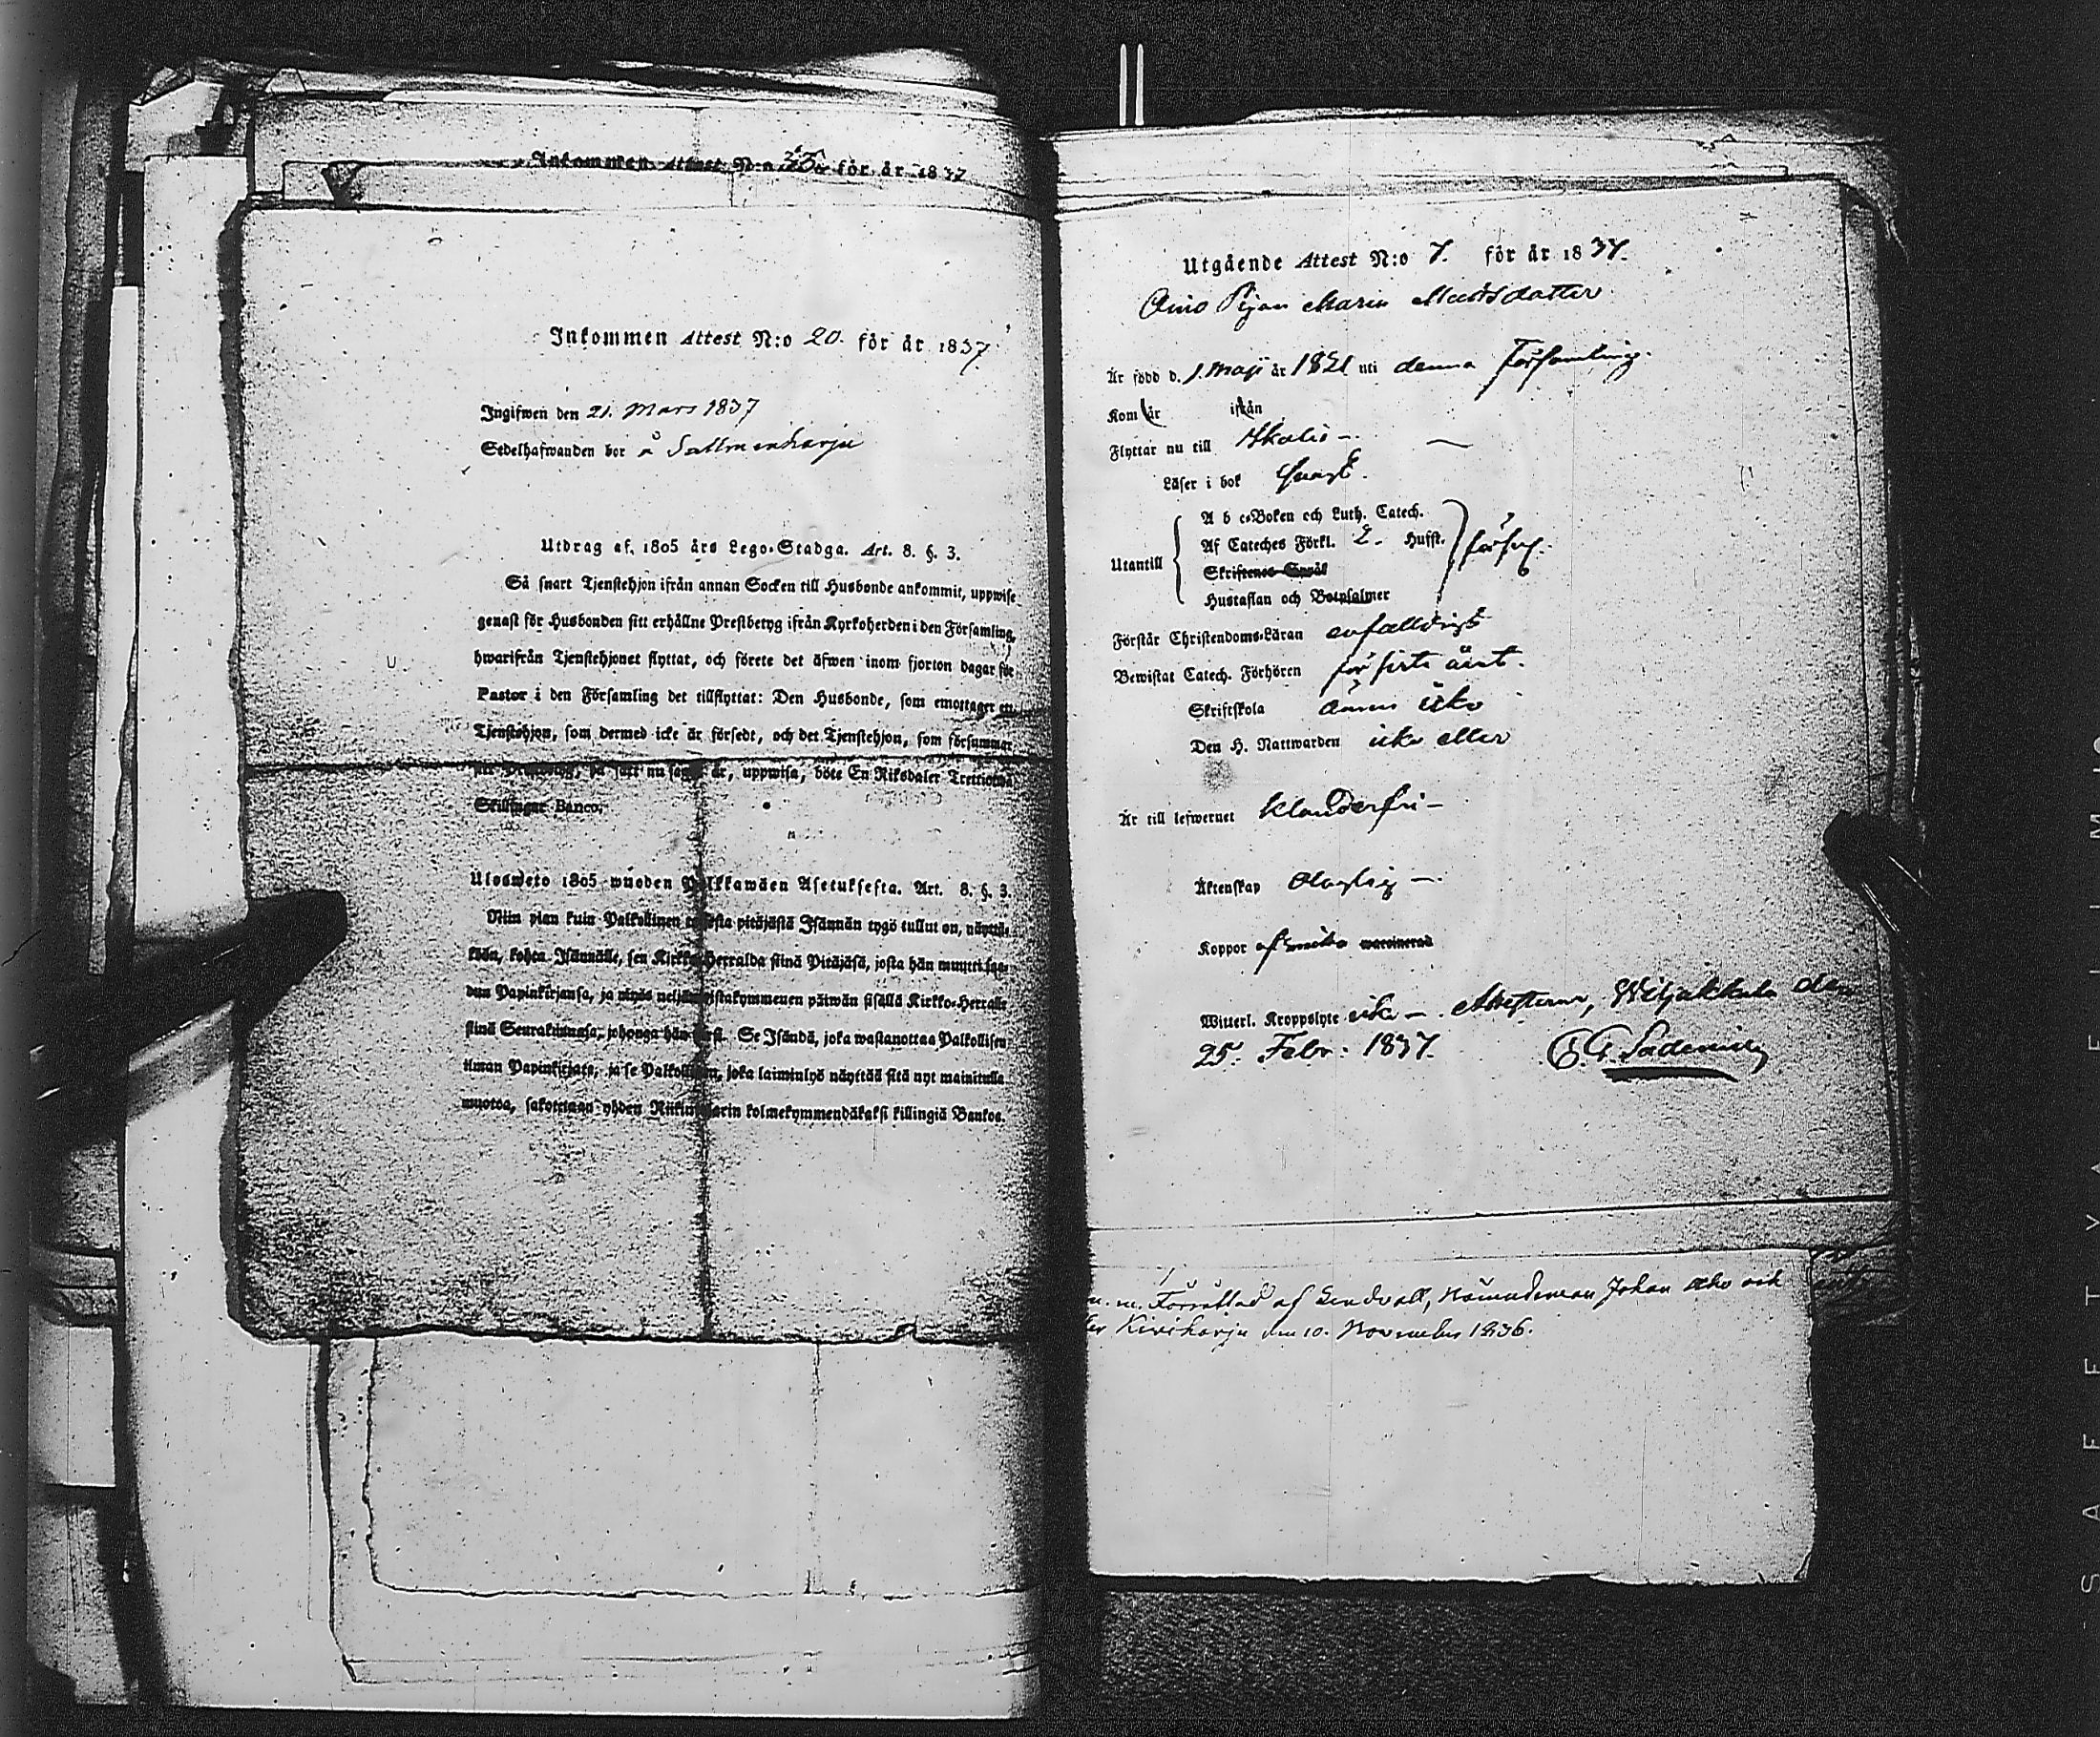 Inkommen Attest N:o 35 för år 1837
Inkommen Attest N:o 20. för år 1837.
Ingifwen den 21. Mars 1837
Sedelhafwanden bor å Sallmenharju
Utdrag af. 1805 års Lego-Stadga. Art. 8. §. 3.
Så snart Tjenstehjon ifrån annan Socken till Husbonde ankommit, uppwise
genast för Husbonden sitt erhållne Prestbetyg ifrån Kyrkoherden i den Församling,
hwarifrån Tjenstehjonet flyttat, och förete det äfwen inom fjorton dagar för
Pastor i den Församling det tillflyttat: Den Husbonde, som emottager en
Tjenstehjon, som dermed icke är försedt, och det Tjenstehjon, som försummar
på sätt nu sagdt är, uppwisa, böte En Riksdaler Trettiotwå
Skillingar Banco.
Ulosweto 1805 wuoden Palkkawäen Asetuksesta. Art. 8. §. 3.
Niin pian kuin Palkollinen toisesta pitäjästä Isännän tygö tullut on, näyttä-
köön, kohta Isännälle, sen Kirkko-Herralda siinä Pitäjäsä, josta hän muutti, saa-
dun Papinkirjansa, ja myös neljäntoistakymmenen päiwän sisällä Kirkko-Herralle
siinä Seurakunnasa, johonga hän Se Isändä, joka wastanottaa Palkollisen
ilman Papinkirjata, ja se Palkollinen, joka laiminlyö näyttää sitä nyt mainitulla
muotoa, sakotetaan yhden Riikintalarin kolmekymmendäkaksi killingiä Bankos.
Utgående Attest N:o 7. för år 1837.
Pigan Maria Mattsdotter
Är född d. 1. Maji år 1821 uti denna Församling.
Kom år ifrån
Flyttar nu till Ikalis
Läser i bok svagt.
A b c-Boken och Luth. Catech.
Af Cateches Förkl. 2. Hufst.
Utantill
Skriftenes Språk
Hustaflan och Botpsalmer
Förstår Christendoms-Läran enfaldigt
Bewistat Catech. Förhören
Skriftskola ännu icke
Den H. Nattwarden icke eller
Är till lefwernet klanderfri
Äktenskap Olaglig
Koppor vaccinerad
Witterl. Kroppslyte icke Attesterar, Wiljakkala den
25. Febr: 1837.
m. m. Förrättad af Lindvall, Nämndeman Johan och
Kiviharju den 10. November 1836.